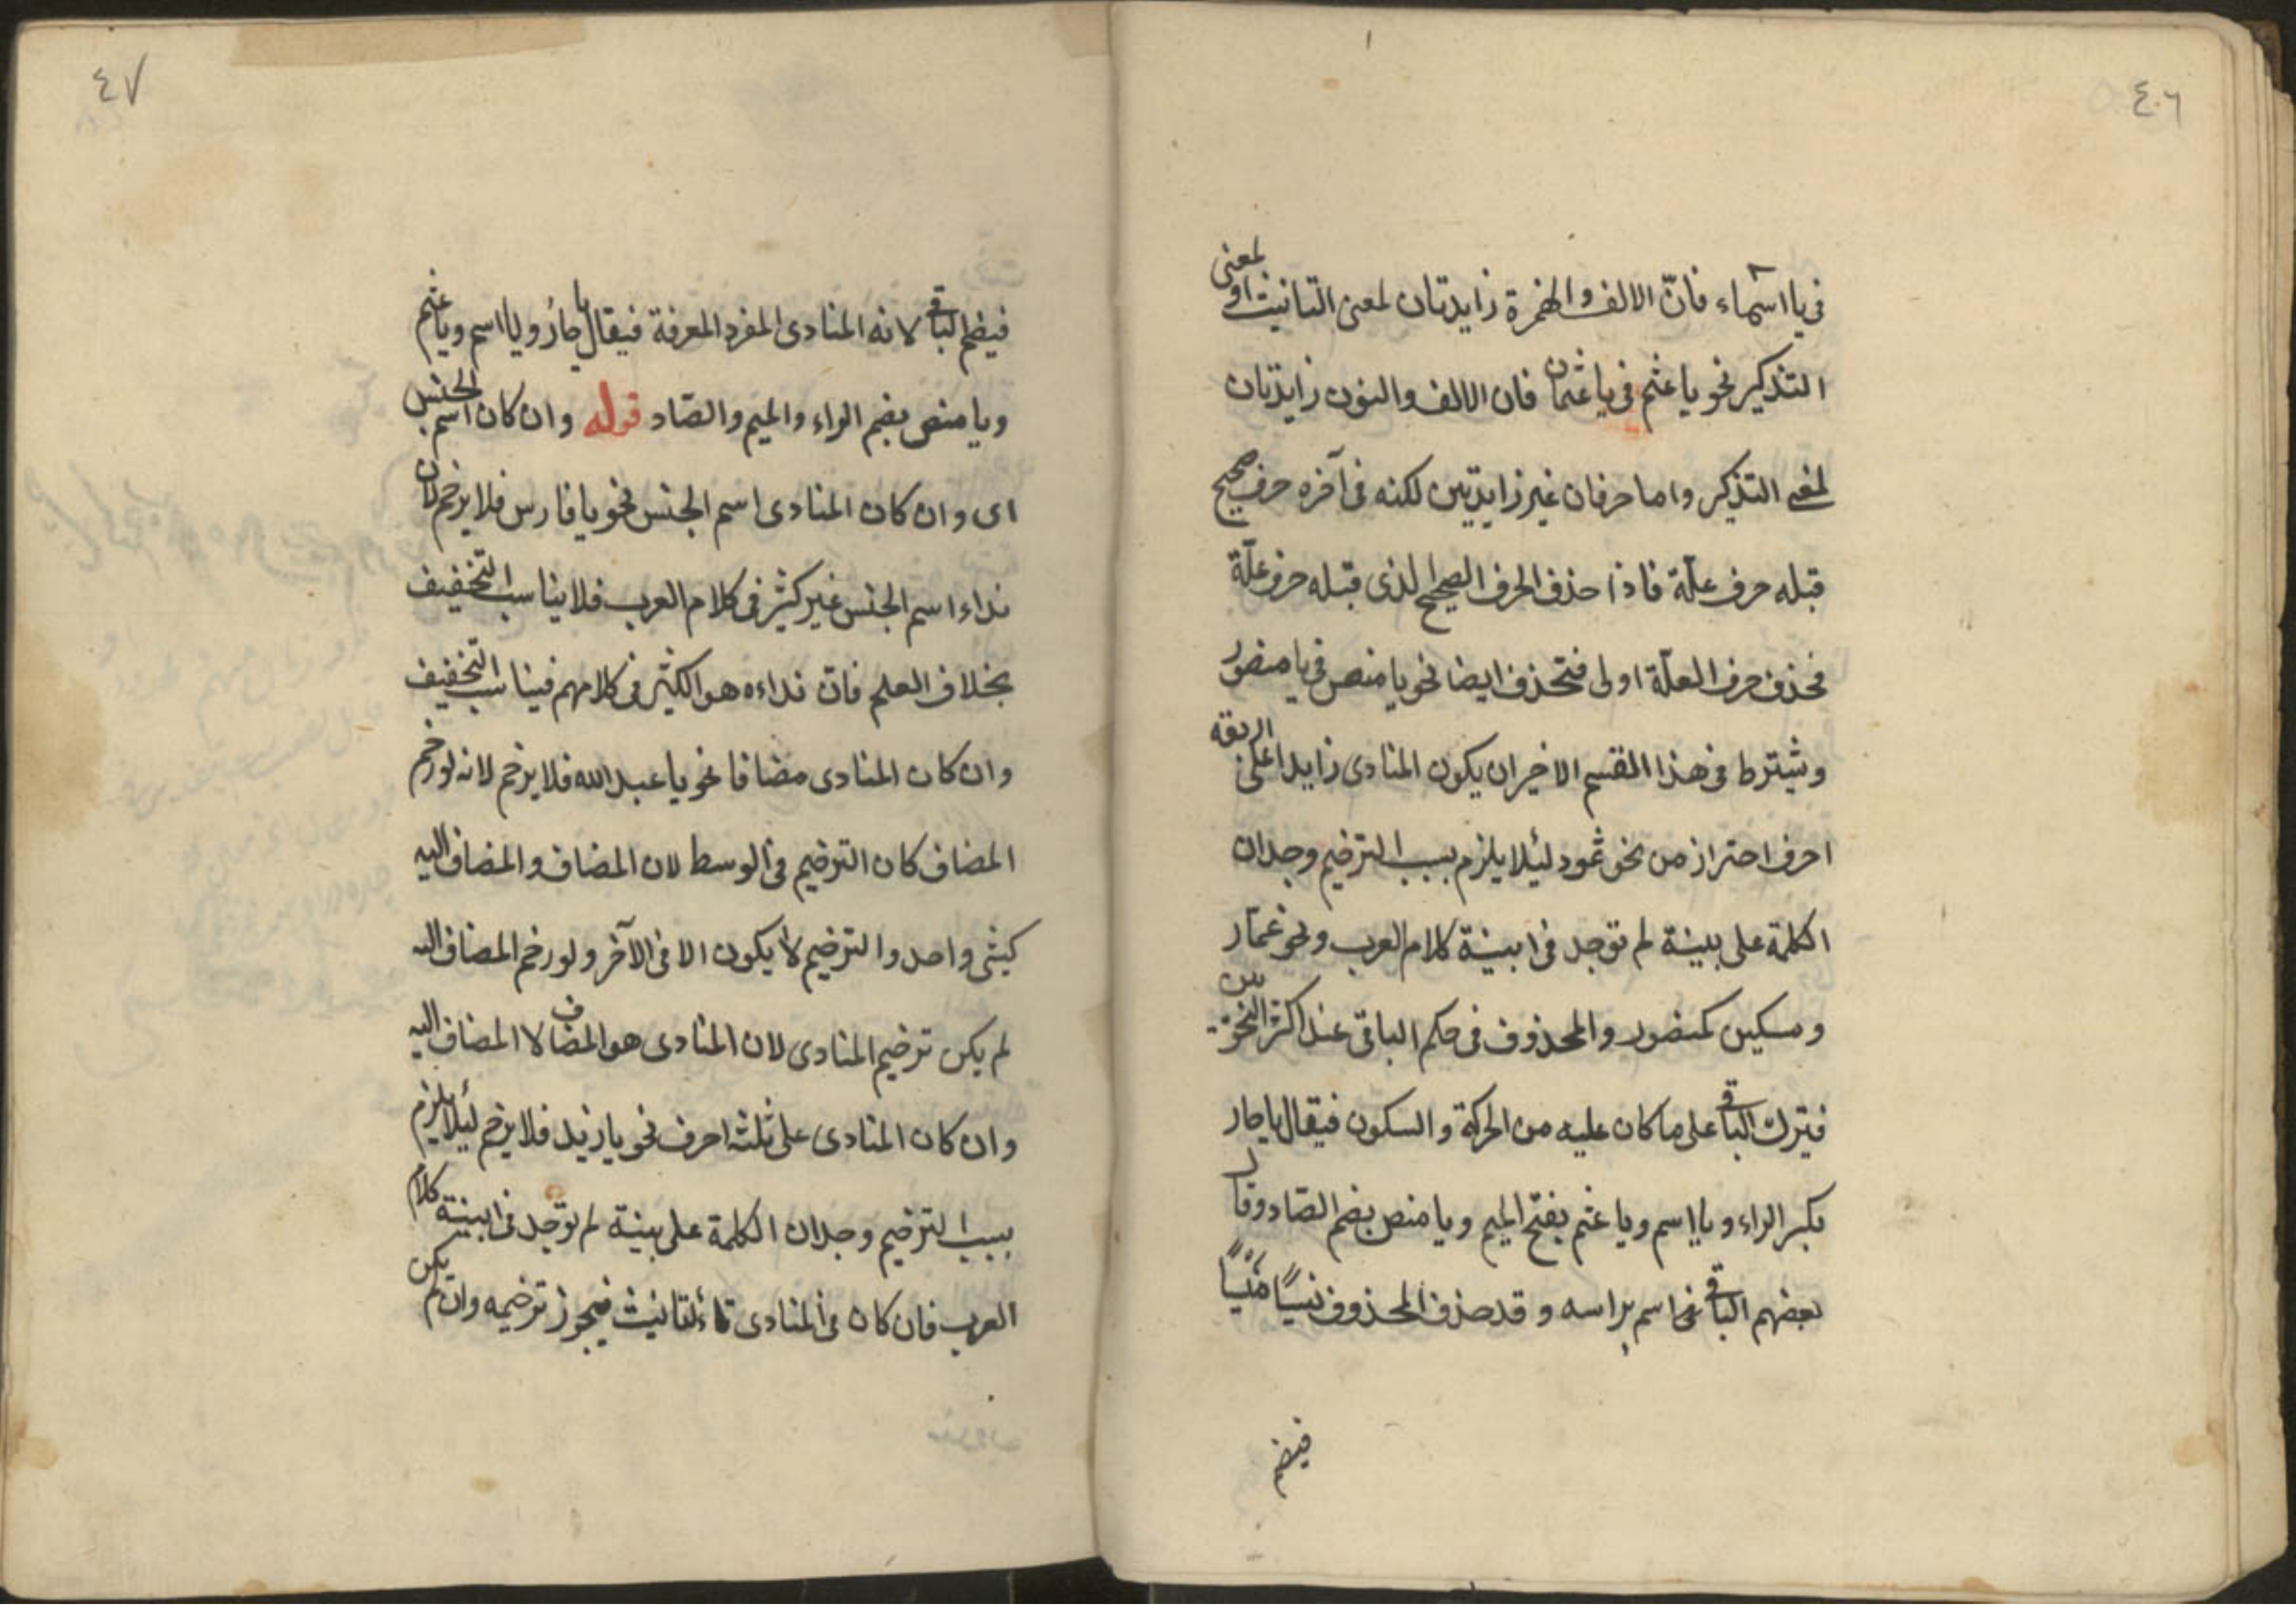 ٤٠٦
في يا اسماء فانّ الالف والهمزة زايدتان لمعنى التانيث او لمعنى
التذكير نحو يا عثم في يا عثمان فان الالف والنون زايدتان
لمعنى التذكير واما حرفان غير زايدتين لكنه في آخره حرف صحيح
قبله حرف علّة فاذا حذف الحرف الصحيح الذى قبله حرف علّة
فحذف حرف العلّة اولى فتحذف ايضا نحو يا منص في يا منصور
ويشترط في هذا القسم الاخير ان يكون المنادى زايدا على اربعة
احرف احتراز من نحو ثمود ليئلا يلزم بسبب الترخيم وجدان
الكلمة على بينة لم توجد في ابنية كلام العرب ونحو عمّار
ومسكين كمنصور والمحذوف في حكم الباقى عند اكثر النحويين
فيترك الباقى على ما كان عليه من الحركة والسكون فيقال يا حار
بكسر الراء ويا اسم ويا عثم بفتح الميم ويا منص بضم الصّاد وقال
بعضهم الباقى اسم براسه وقد حذف المحذوف نسيًا منسيًّا
فيضم
٤٧
فيضم الباقى لانه المنادى المفرد المعرفة فيقال يا حارُ ويا اسم ويا عثم
ويا منص بضم الراء والميم والصّاد قوله وان كان اسم الجنس
اى وان كان المنادى اسم الجنس نحو يا فارس فلا يرخم لان
نداء اسم الجنس غير كثير في كلام العرب فلا يناسب التخفيف
بخلاف العلم فانّ نداءه هو الكثير في كلامهم فيناسب التخفيف
وان كان المنادى مضافا نحو يا عبد الله فلا يرخم لانه لو رخم
المضاف كان الترخيم في الوسط لان المضاف والمضاف اليه
كشئ واحد والترخيم لا يكون الا في الآخر ولو رخم المضاف اليه
لم يكن ترخيم المنادى لان المنادى هو المضاف لا المضاف اليه
وان كان المنادى على ثلثه احرف نحو يا زيد فلا يرخم ليئلا يلزم
بسبب الترخيم وجدان الكلمة على بينة لم توجد في ابنية كلام
العرب فان كان في المنادى تاء التانيث فيجوز ترخيمه وان لم يكن